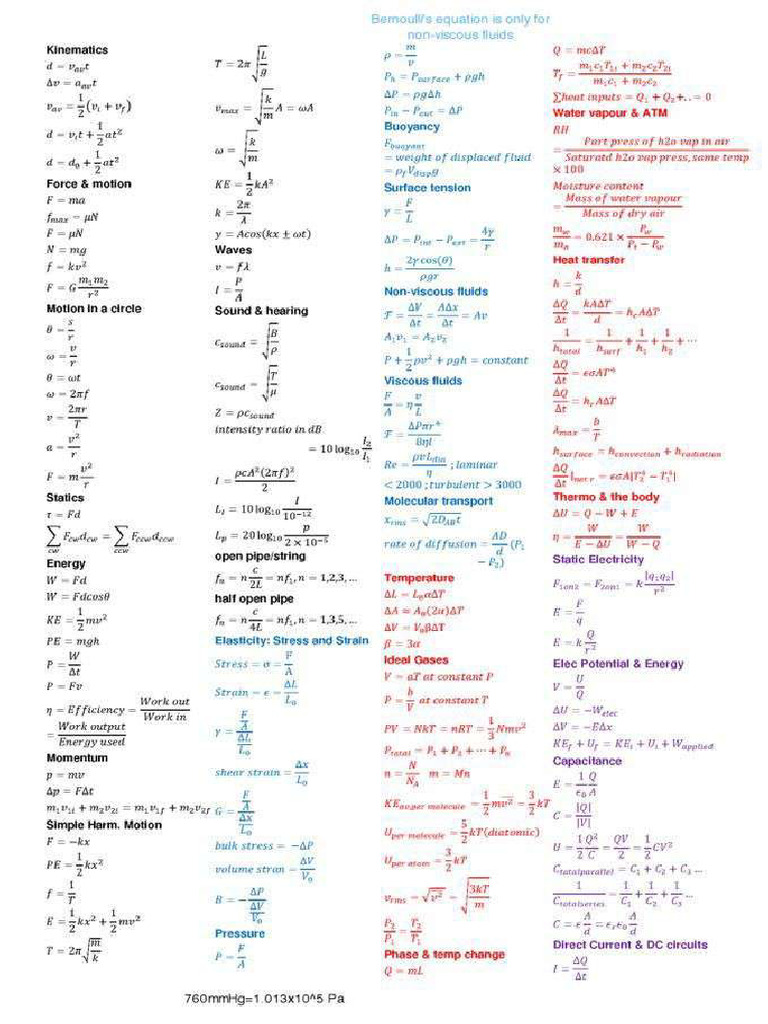 Bernoulli's equation is only for
non-viscous fluids
Kinematics
d = v_av t
Δv = a_av t
v_av = 1/2 (v_i + v_f)
d = v_i t + 1/2 at²
d = d_0 + 1/2 at²
Force & motion
F = ma
f_max = μN
F = μN
N = mg
f = kv²
F = G m_1 m_2 / r²
Motion in a circle
θ = s/r
ω = v/r
θ = ωt
ω = 2πf
v = 2πr/T
a = v²/r
F = m v²/r
Statics
τ = Fd
∑_cw F_cw d_cw = ∑_ccw F_ccw d_ccw
Energy
W = Fd
W = Fdcosθ
KE = 1/2 mv²
PE = mgh
P = W/Δt
P = Fv
η = Efficiency = Work out / Work in
= Work output / Energy used
Momentum
p = mv
Δp = FΔt
m_1v_1i + m_2v_2i = m_1v_1f + m_2v_2f
Simple Harm. Motion
F = −kx
PE = 1/2 kx²
f = 1/T
E = 1/2 kx² + 1/2 mv²
T = 2π√(m/k)
T = 2π√(L/g)
v_max = √(k/m) A = ωA
ω = √(k/m)
KE = 1/2 kA²
k = 2π/λ
y = Acos(kx ± ωt)
Waves
v = fλ
I = P/A
Sound & hearing
c_sound = √(B/ρ)
c_sound = √(T/μ)
Z = ρc_sound
intensity ratio in dB
= 10 log_10 I_2/I_1
I = ρcA²(2πf)² / 2
L_I = 10 log_10 I / 10^−12
L_p = 20 log_10 p / 2 × 10^−5
open pipe/string
f_n = n c/2L = nf_1, n = 1,2,3, …
half open pipe
f_n = n c/4L = nf_1, n = 1,3,5, …
Elasticity: Stress and Strain
Stress = σ = F/A
Strain = e = ΔL/L_o
γ = (F/A) / (ΔL/L_o)
shear strain = Δx/L_o
G = (F/A) / (Δx/L_o)
bulk stress = −ΔP
volume stran = ΔV/V_o
B = − ΔP / (ΔV/V_o)
Pressure
P = F/A
760mmHg=1.013x10^5 Pa
ρ = m/v
P_h = P_surface + ρgh
ΔP = ρgΔh
P_in − P_out = ΔP
Buoyancy
F_buoyant
= weight of displaced fluid
= ρ_f V_disp g
Surface tension
γ = F/L
ΔP = P_int − P_ext = 4γ/r
h = 2γ cos(θ) / ρgr
Non-viscous fluids
F = ΔV/Δt = AΔx/Δt = Av
A_1v_1 = A_2v_2
P + 1/2 ρv² + ρgh = constant
Viscous fluids
F/A = η v/L
F = ΔPπr⁴ / 8ηl
Re = ρvL_dim / η ; laminar
< 2000 ; turbulent > 3000
Molecular transport
x_rms = √(2D_AB t)
rate of diffusion = AD/d (P_1
− P_2)
Temperature
ΔL = L_o αΔT
ΔA = A_o(2α)ΔT
ΔV = V_o βΔT
β = 3α
Ideal Gases
V = aT at constant P
P = b/V at constant T
PV = NkT = nRT = 1/3 Nmv²
P_total = P_1 + P_2 + ⋯ + P_n
n = N/N_A m = Mn
KE_av.per molecule = 1/2 mv² = 3/2 kT
U_per molecule = 5/2 kT(diatomic)
U_per atom = 3/2 kT
v_rms = √v² = √(3kT/m)
P_2/P_1 = T_2/T_1
Phase & temp change
Q = mL
Q = mcΔT
T_f = (m_1c_1T_1i + m_2c_2T_2i) / (m_1c_1 + m_2c_2)
∑heat inputs = Q_1 + Q_2 +. . = 0
Water vapour & ATM
RH
= Part press of h2o vap in air / Saturatd h2o vap press, same temp
× 100
Moisture content
= Mass of water vapour / Mass of dry air
m_w/m_a = 0.621 × P_w / (P_t − P_w)
Heat transfer
h = k/d
ΔQ/Δt = kAΔT/d = h_c AΔT
1/h_total = 1/h_surf + 1/h_1 + 1/h_2 + ⋯
ΔQ/Δt = εσAT⁴
ΔQ/Δt = h_r AΔT
λ_max = b/T
h_surface = h_convection + h_radiation
ΔQ/Δt |_nett = εσA|T_2⁴ − T_1⁴|
Thermo & the body
ΔU = Q − W + E
η = W / (E − ΔU) = W / (W − Q)
Static Electricity
F_1on2 = F_2on1 = k |q_1q_2| / r²
E = F/q
E = k Q/r²
Elec Potential & Energy
V = U/Q
ΔU = −W_elec
ΔV = −EΔx
KE_f + U_f = KE_i + U_i + W_applied
Capacitance
E = 1/ε_0 Q/A
C = |Q|/|V|
U = 1/2 Q²/C = QV/2 = 1/2 CV²
C_totalparallel = C_1 + C_2 + C_3 …
1/C_totalseries = 1/C_1 + 1/C_2 + 1/C_3 …
C = ε A/d = ε_r ε_0 A/d
Direct Current & DC circuits
I = ΔQ/Δt